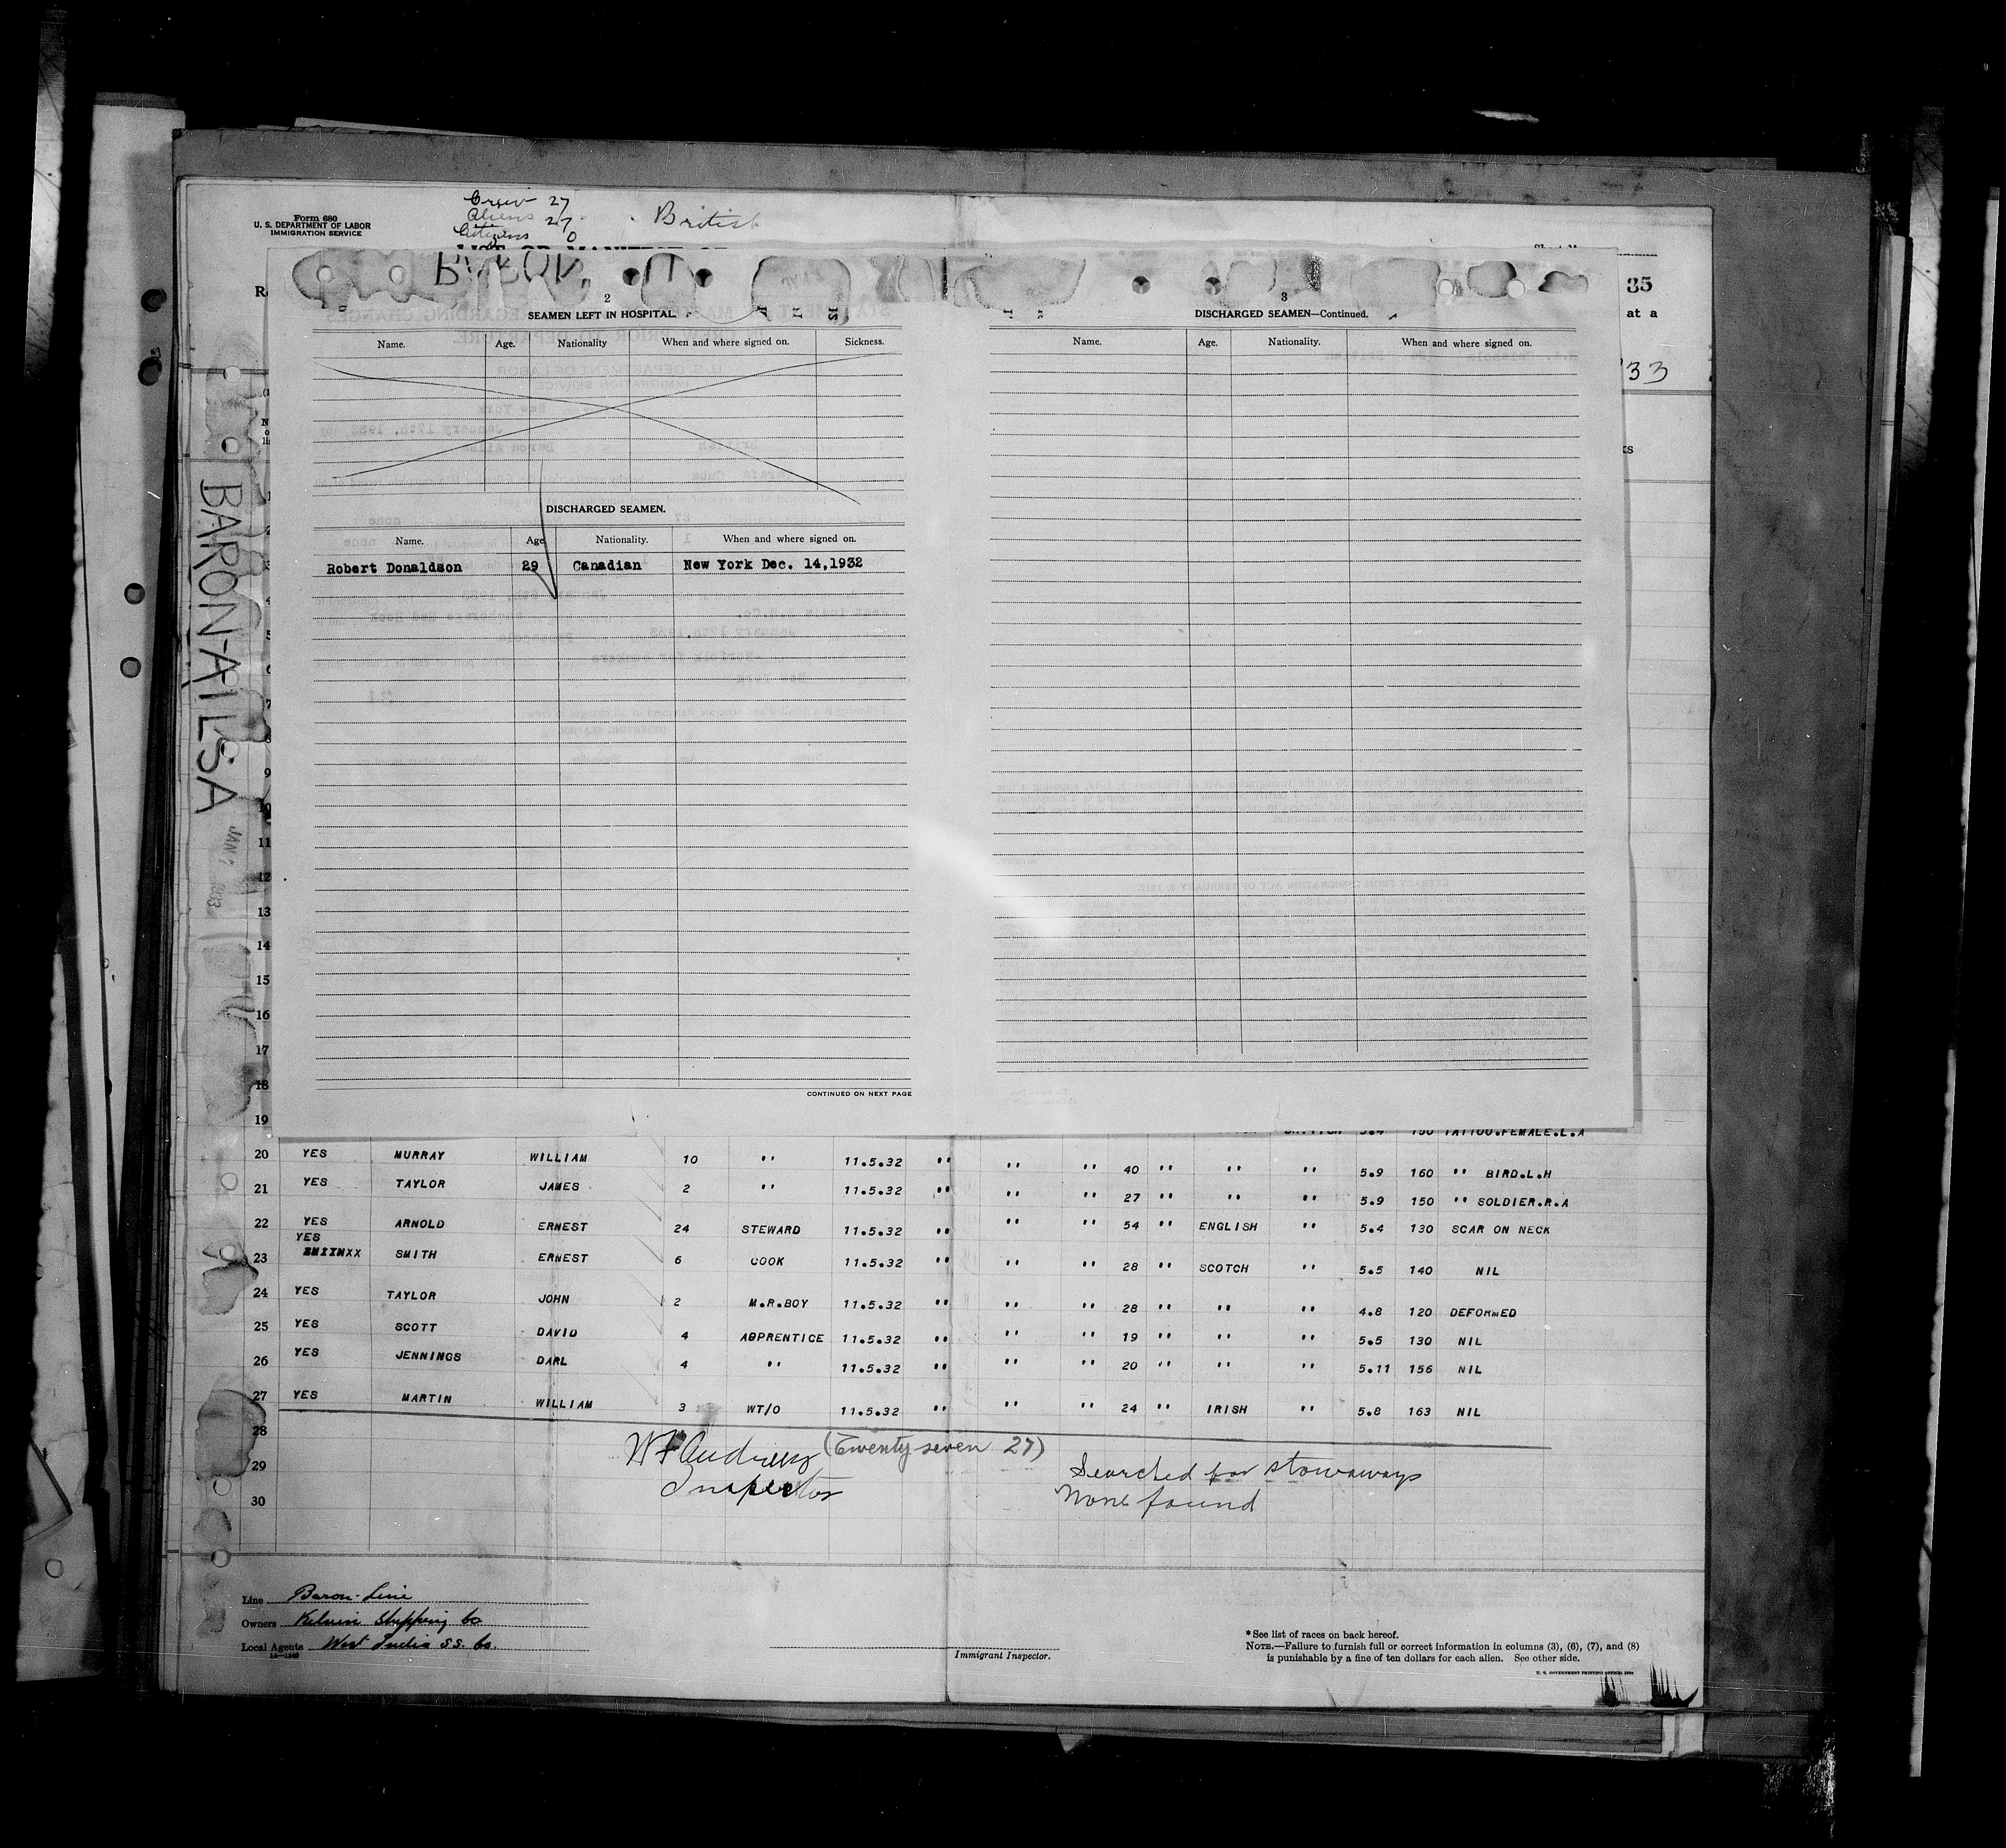 Form 680
U. S. DEPARTMENT OF LABOR
IMMIGRATION SERVICE
Crew 27
Aliens 27
Citizens 0
British
35
at a
33
BARON-AILSA
2
SEAMEN LEFT IN HOSPITAL.
Name. Age. Nationality When and where signed on. Sickness.
DISCHARGED SEAMEN.
Name. Age Nationality. When and where signed on.
Robert Donaldson 29 Canadian New York Dec. 14,1932
CONTINUED ON NEXT PAGE
3
DISCHARGED SEAMEN—Continued.
Name. Age. Nationality. When and where signed on.
9
10
11
12
13
14
15
16
17
18
19 5.4 150 TATTOO.FEMALE.L.A
20 YES MURRAY WILLIAM 10 " 11.5.32 " " " 40 " " " 5.9 160 " BIRD.L.H
21 YES TAYLOR JAMES 2 " 11.5.32 " " " 27 " " " 5.9 150 " SOLDIER.R.A
22 YES ARNOLD ERNEST 24 STEWARD 11.5.32 " " " 54 " ENGLISH " 5.4 130 SCAR ON NECK
YES
23 SMITH ERNEST 6 COOK 11.5.32 " " " 28 " SCOTCH " 5.5 140 NIL
24 YES TAYLOR JOHN 2 M.R.BOY 11.5.32 " " " 28 " " " 4.8 120 DEFORMED
25 YES SCOTT DAVID 4 ABPRENTICE 11.5.32 " " " 19 " " " 5.5 130 NIL
26 YES JENNINGS DARL 4 " 11.5.32 " " " 20 " " " 5.11 156 NIL
27 YES MARTIN WILLIAM 3 WT/O 11.5.32 " " " 24 " IRISH " 5.8 163 NIL
28
29
30
(Twenty seven 27)
Inspector
Searched for stowaways
None found
Line Baron-Line
Owners Kelvin Shipping Co
Local Agents West India S.S. Co.
14—1240
Immigrant Inspector.
* See list of races on back hereof.
NOTE.—Failure to furnish full or correct information in columns (3), (6), (7), and (8)
is punishable by a fine of ten dollars for each alien. See other side.
U. S. GOVERNMENT PRINTING OFFICE: